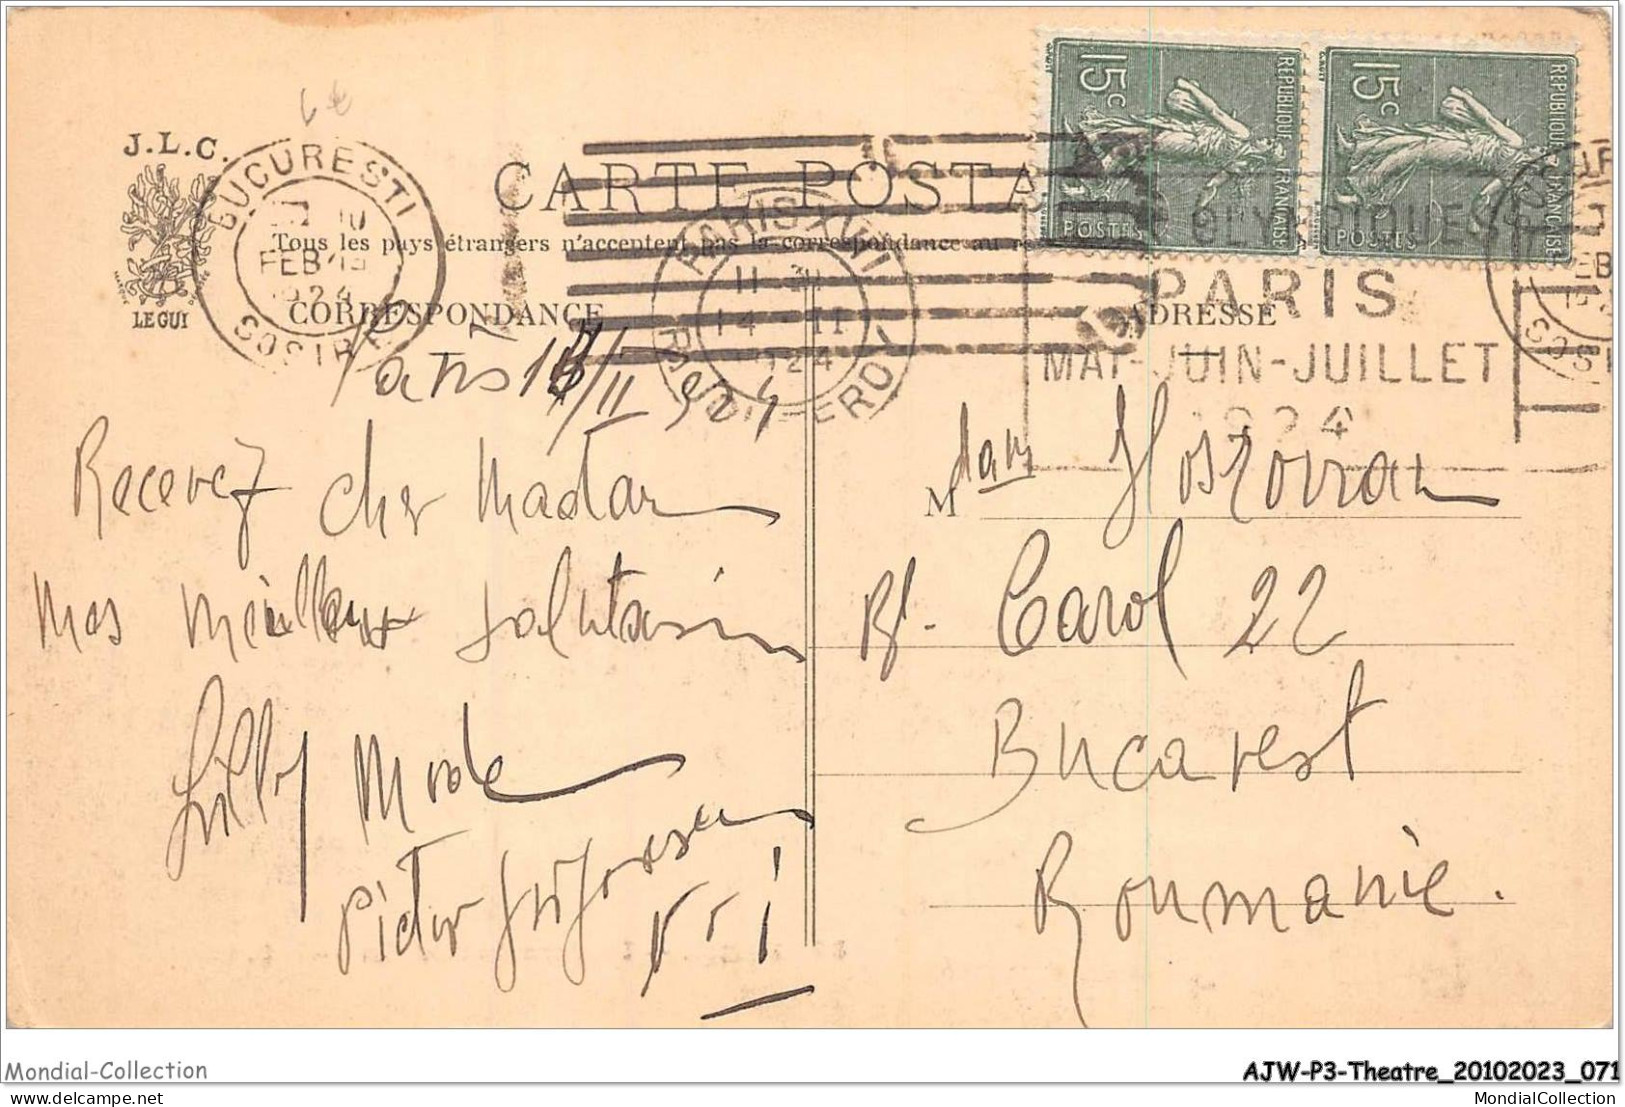 J.L.C.
LE GUI
BUCURESTI
10
FEB 19
1924
SOSIRE
CARTE POSTA
Tous les pays étrangers n'acceptent pas la correspondance au
CORRESPONDANCE
ADRESSE
PARIS XVI
11 30
14 - II
1924
15c
REPUBLIQUE FRANÇAISE
POSTES
15c
REPUBLIQUE FRANÇAISE
POSTES
OLYMPIQUES
PARIS
MAI-JUIN-JUILLET
1924
Paris 13/II 924
Recevez cher Madam
mes meilleux salutasin
Lilly
Victor
M dam
Bd. Carol 22
Bucarest
Roumanie.
Mondial-Collection
AJW-P3-Theatre_20102023_071
delcampe.net
MondialCollection